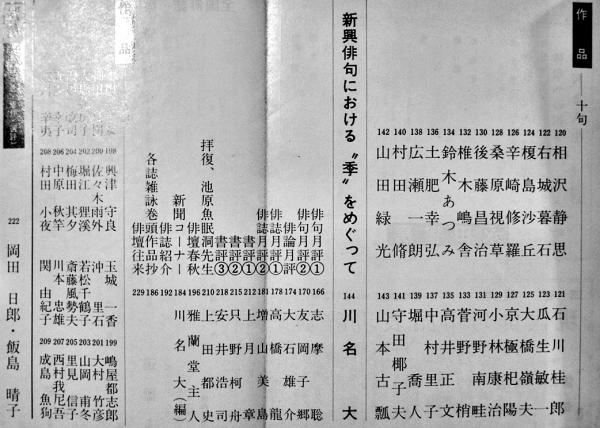 作品
十句
120 相沢静思
122 右城暮石
124 榎島沙丘
126 辛崎修羅
128 桑原視草
130 後藤昌治
132 椎木嶋舎
134 鈴木あつみ
136 土肥幸弘
138 広瀬一朗
140 村田脩
142 山田緑光
121 石川桂郎
123 瓜生敏一
125 大橋嶺夫
127 京極杞陽
129 小林康治
131 河野南畦
133 菅野梢
135 高井正文
137 中村里子
139 堀喬人
141 守田椰子夫
143 山本古瓢
新興俳句における〝季〟をめぐって 144 川名大
俳句月評① 166 志摩聡
俳句月評② 170 友岡子郷
俳論月評 174 大石雄介
俳誌月評① 178 高橋龍
俳誌月評② 181 増山美島
書評① 212 上月章
書評② 215 只野柯舟
書評③ 218 安井浩司
拝復、池原魚眠洞先生 210 上田都史
俳壇春秋 196 雅蘭堂主人
新聞コーナー 184 川名大(編)
俳誌紹介 192
各誌雑詠巻頭作品抄 186
俳壇往来 229
作品
198 興津守良
200 佐々木雨外
202 堀江狸渓
204 梅田其夕
206 中原秋竹
208 村田小夜
玉城一香
沖里石
若松鶴子
斎藤千勢夫
川本風雄
関由紀子
199 嶋屋都志郎
201 大村竹彦
203 山岡甫冬
205 里見信子
207 西村我尼吾
209 成島魚狗
222 岡田日郎・飯島晴子